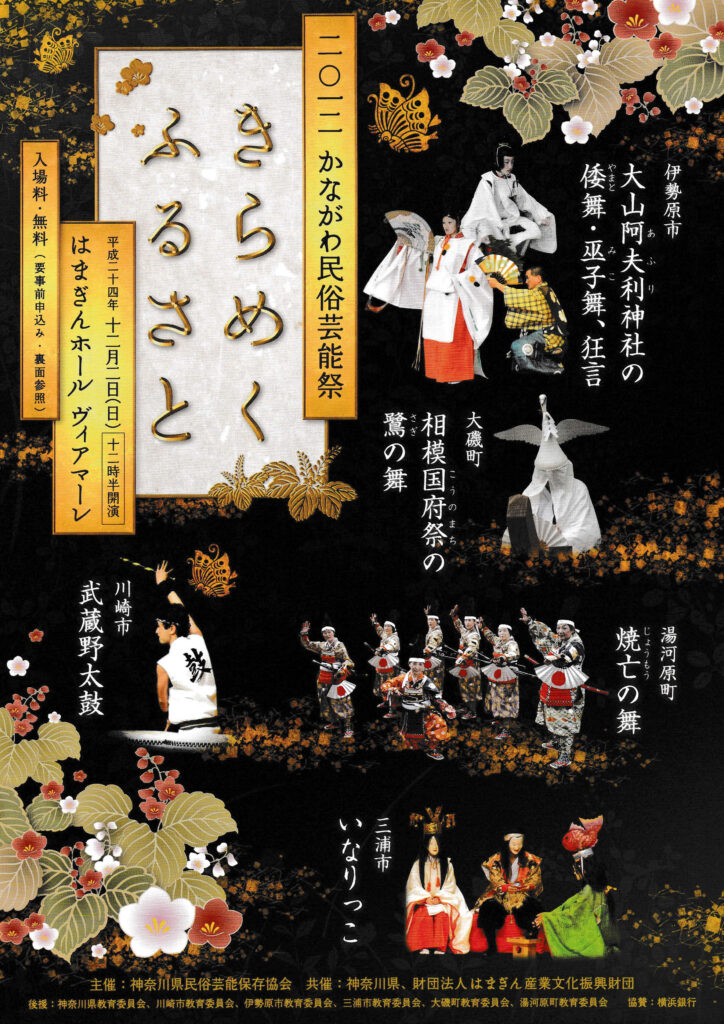 二〇一二 かながわ民俗芸能祭
きらめく
ふるさと
平成二十四年 十二月二日(日) 十二時半開演
はまぎんホール ヴィアマーレ
入場料・無料(要事前申込み・裏面参照)
伊勢原市
大山阿夫利神社の
あふり
倭舞・巫子舞、狂言
やまと みこ
大磯町
相模国府祭の
こうのまち
鷺の舞
さぎ
湯河原町
焼亡の舞
じょうもう
川崎市
武蔵野太鼓
鼓
三浦市
いなりっこ
主催:神奈川県民俗芸能保存協会 共催:神奈川県、財団法人はまぎん産業文化振興財団
後援:神奈川県教育委員会、川崎市教育委員会、伊勢原市教育委員会、三浦市教育委員会、大磯町教育委員会、湯河原町教育委員会 協賛:横浜銀行